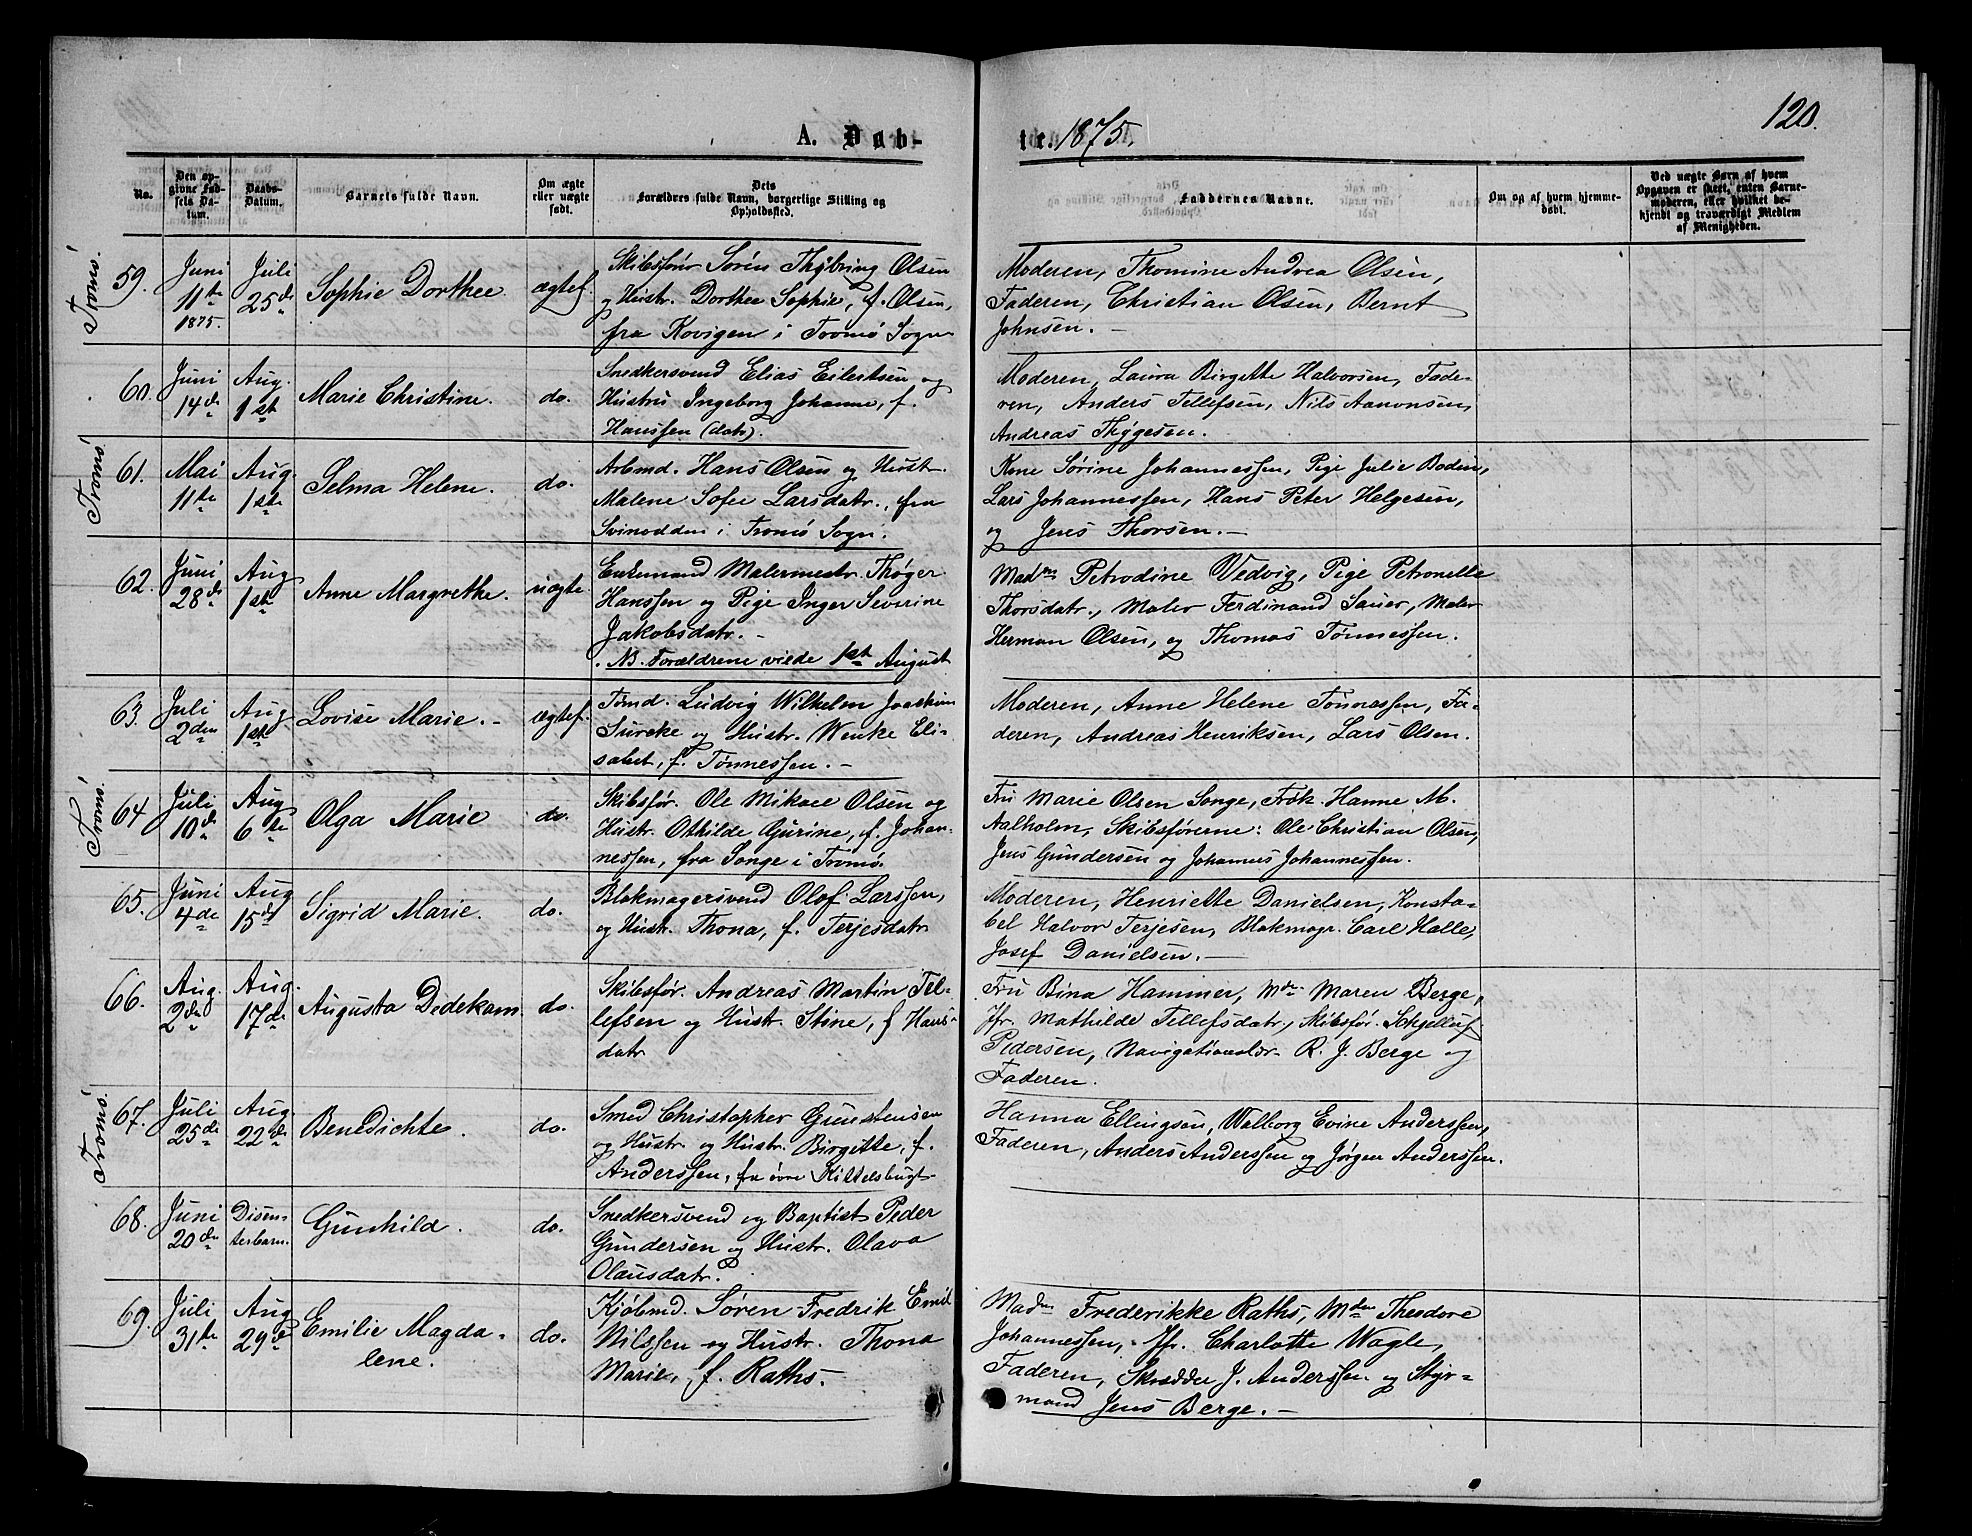 120.
A. Døb-
te. 1875.
No.
Den op-
givne Fød-
sels Da-
tum.
Daabs-
Datum.
Barnets fulde Navn.
Om ægte
eller uægte
født.
Dets
Forældres fulde Navn, borgerlige Stilling og
Opholdssted.
Faddernes Navne.
Om og af hvem hjemme-
døbt.
Ved uægte Børn af hvem
Opgaven er skeet, enten Barne-
moderen, eller hvilket be-
kjendt og troværdigt Medlem
af Menigheden.
Tromø.
59.
Juni
11te
1875.
Juli
25de
Sophie Dorthee
ægtef.
Skibsfører Sørin Thybring Olsen
og Hustr. Dorthee Sophie, f. Olsen,
fra Kovigen i Tromø Sogn
Moderen, Thomine Andrea Olsen,
Faderen, Christian Olsen, Bernt
Johnsen. —
60.
Juni
14de
Aug.
1ste
Marie Christine.
do.
Snedkersvend Elias Eileitsen og
Hustru Ingeborg Johanne, f.
Hanssen (datr).
Moderen, Laura Birgitte Halvorsen, Fade-
ren, Anders Tellefsen, Nils Aanonsen,
Andreas Thygesen.
Tromø.
61.
Mai
11te
Aug.
1ste
Selma Helene.
do.
Arbmd. Hans Olsen og Hustr.
Malene Sofie Larsdatr., fra
Svinodden i Tromø Sogn.
Kone Sørine Johannessen, Pige Julie Bodin,
Lars Johannessen, Hans Peter Helgesen,
og Jens Thorsen. —
62.
Juni
28de
Aug
1ste
Anne Margrethe.
uægte
Enkemand Malermestr. Thøger
Hanssen og Pige Inger Severine
Jakobsdatr. —
NB. Forældrene viede 1ste August
Madm Petrodine Vedvig, Pige Petronelle
Thorsdatr., Maler Ferdinand Sauer, Maler
Herman Olsen, og Thomas Tønnessen.
63.
Juli
2den
Aug
1ste
Lovise Marie. —
ægtef.
Tømd. Ludvig Wilhelm Joachim
Surcke og Hustr. Wenke Eli-
sabet, f. Tønnessen. —
Moderen, Anne Helene Tønnessen, Fa-
deren, Andreas Henriksen, Lars Olsen.
Tromø.
64
Juli
10de
Aug
6te
Olga Marie
do.
Skibsfør. Ole Mikael Olsen og
Hustr. Othilde Gurine, f. Johan-
nessen, fra Songe i Tromø.
Fru Marie Olsen Songe, Frøk. Hanne M.
Aalholm, Skibsførerne: Ole Christian Olsen,
Jens Gundersen og Johannes Johannessen.
65.
Juni
4de
Aug
15de
Sigrid Marie.
do.
Blokmagersvend Olof Larssen,
og Hustr. Thona, f. Terjesdatr
Moderen, Henriette Danielsen, Konsta-
bel Halvor Terjesen, Blokmagr. Carl Halle,
Josef Danielsen. —
66.
Aug.
2de
Aug.
17de
Augusta Dedekam.
do.
Skibsfør. Andreas Martin Tel-
lefsen og Hustr. Stine, f Hans-
datr
Fru Bina Hammer, Mdm Maren Berge,
Jfr. Mathilde Tellefsdatr., Skibsfør. Schjellup
Pedersen, Navigationslær. R. J. Berge og
Faderen.
Tromø.
67.
Juli
25de
Aug.
22de
Benedichte.
do.
Smed Christopher Gunstensen
og Hustr. og Hustr. Birgitte, f.
Anderssen, fra øvre Kittelsbugt
Hanna Ellingsen, Walborg Evine Anderssen,
Faderen, Anders Anderssen og Jørgen Anderssen.
68.
Juni
20de
Disen-
terbarn.
Gunhild.
do.
Snedkersvend og Baptist Peder
Gundersen og Hustr. Olava
Olausdatr.
69.
Juli
31te
Aug
29de
Emilie Magda-
lene.
do.
Kjøbmd. Søren Fredrik Emil
Nilssen og Hustr. Thona
Marie, f. Raths. —
Madm Frederikke Raths, Mdm Theodore
Johannessen, Jfr. Charlotte Wagle,
Faderen, Skrædder J. Anderssen og Styr-
mand Jens Berge. —